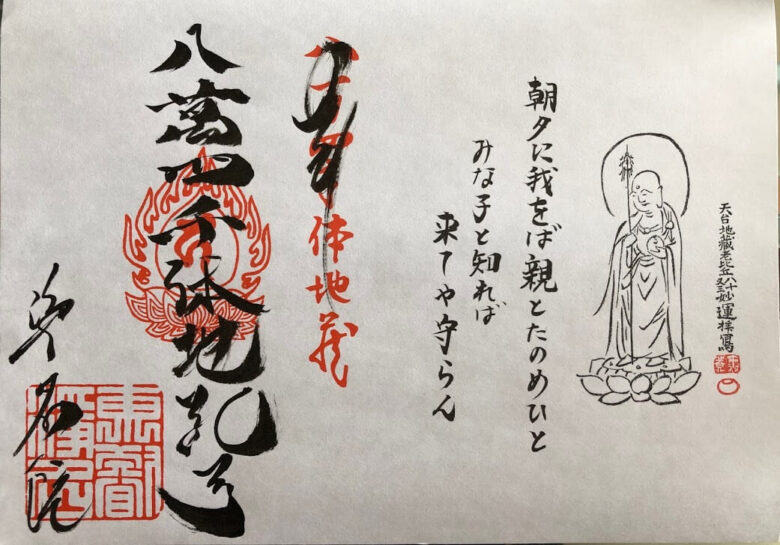 天台地藏老比丘妙運
朝夕に我をば親とたのめひと
みな子と知れば
来てや守らん
奉拝
体地蔵
八萬四千体地蔵尊
浄名院